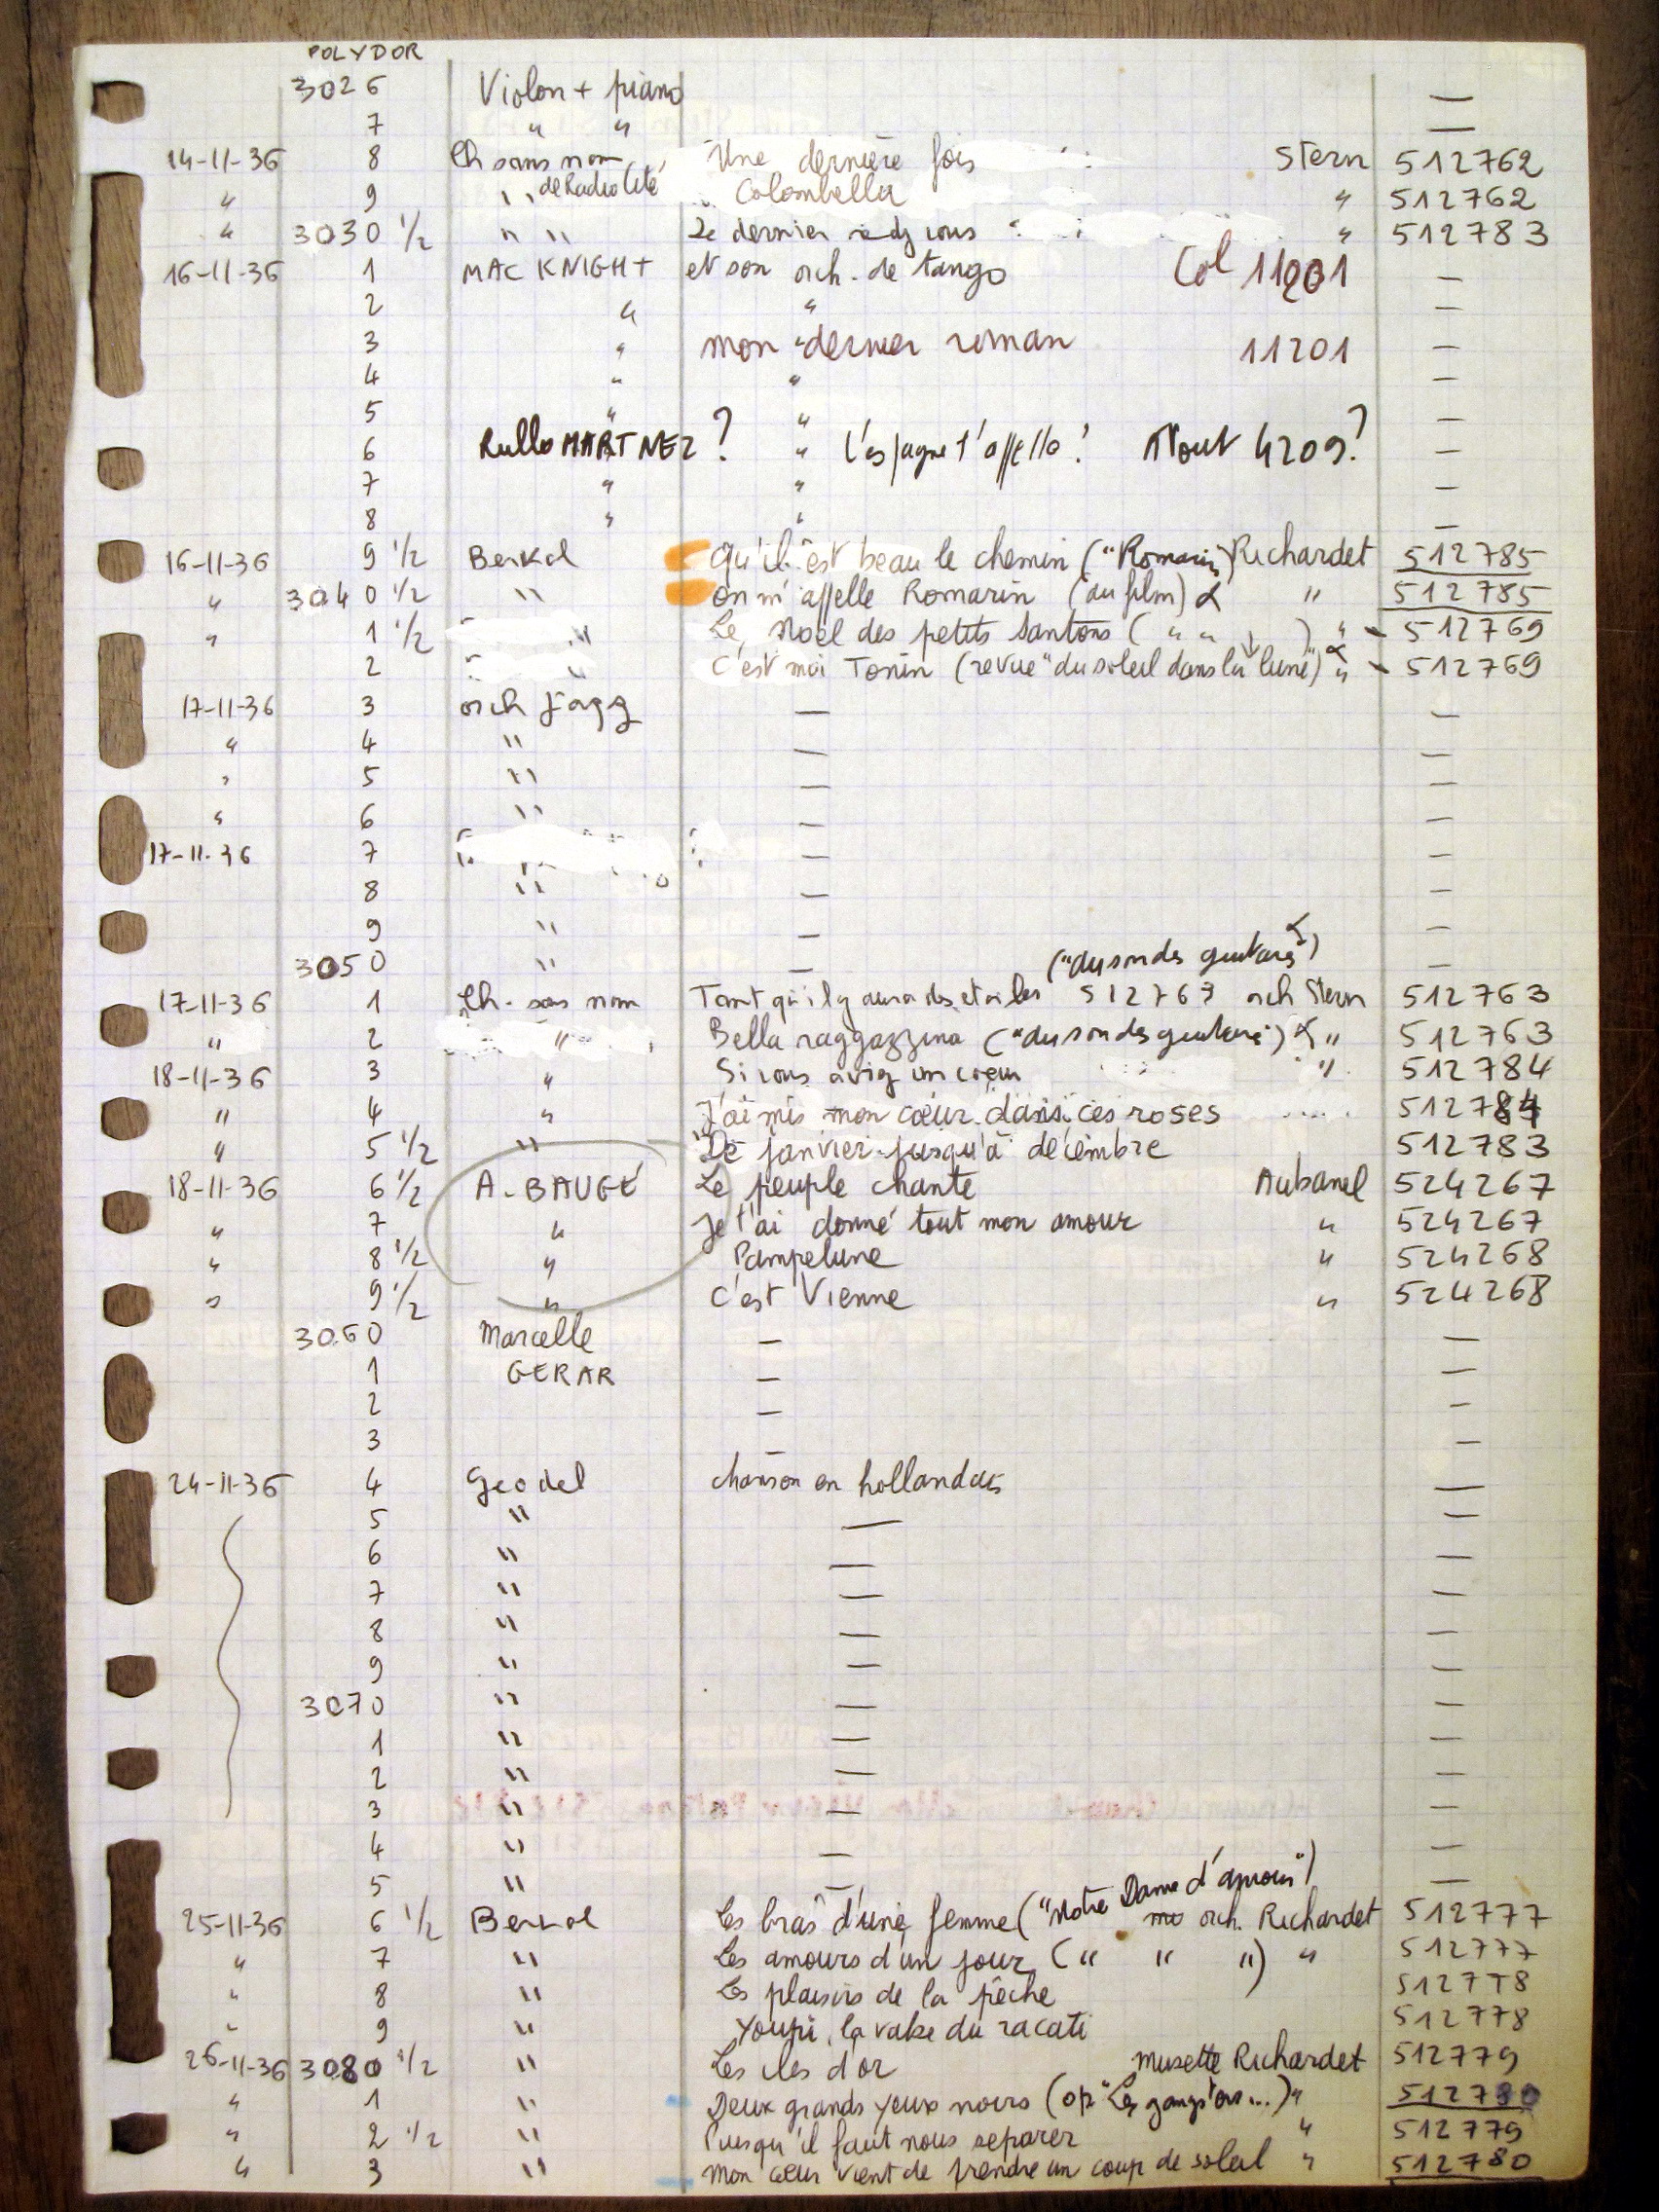 POLYDOR
3026 Violon + piano —
7 " " —
14-11-36 8 Ch sans nom Une dernière fois Stern 512762
" 9 " " de Radio Cité Colombella " 512762
" 3030 1/2 " " Le dernier rdz vous " 512783
16-11-36 1 MAC KNIGHT et son orch. de tango Col 11201 —
2 " " —
3 " " mon dernier roman 11201 —
4 " " —
5 " " —
6 Rullo MARTNEZ ? " L'espagne t'appelle ? 4209 ? —
7 " " —
8 " " —
16-11-36 9 1/2 Berkal qu'il est beau le chemin ("Romarin") Richardet 512785
" 3040 1/2 " on m'appelle Romarin (du film) " 512785
" 1 1/2 " Le Noël des petits santons ( " " ) " - 512769
2 " C'est moi Tonin (revue "du soleil dans la lune") " - 512769
17-11-36 3 orch Jazz — —
" 4 " — —
" 5 " — —
" 6 " — —
17-11-36 7 — —
8 " — —
9 " — —
3050 " — —
("au son des guitares")
17-11-36 1 Ch. sans nom Tant qu'il y aura des etoiles 512763 orch Stern 512763
" 2 " Bella raggazzina ("au son des guitares") " 512763
18-11-36 3 " Si vous aviez un coeur " 512784
" 4 " J'ai mis mon coeur dans ces roses 512784
" 5 1/2 " De janvier jusqu'à décembre 512783
18-11-36 6 1/2 A. BAUGÉ Le peuple chante Aubanel 524267
" 7 " Je t'ai donné tout mon amour " 524267
" 8 1/2 " Pampelune " 524268
" 9 1/2 " C'est Vienne " 524268
3060 Marcelle — —
1 GERAR — —
2 — —
3 — —
24-11-36 4 Geodel chanson en hollandais —
5 " — —
6 " — —
7 " — —
8 " — —
9 " — —
3070 " — —
1 " — —
2 " — —
3 " — —
4 " — —
5 " — —
25-11-36 6 1/2 Berkal Les bras d'une femme ("Notre Dame d'amour") orch. Richardet 512777
" 7 " Les amours d'un jour ( " " " ) " 512777
" 8 " Les plaisirs de la pêche 512778
" 9 " Youpi, la valse du racati 512778
26-11-36 3080 1/2 " Les iles d'or musette Richardet 512779
" 1 " Deux grands yeux noirs (op "Les gangsters...) " 512780
" 2 1/2 " Puisqu'il faut nous separer " 512779
" 3 " Mon coeur vient de prendre un coup de soleil " 512780